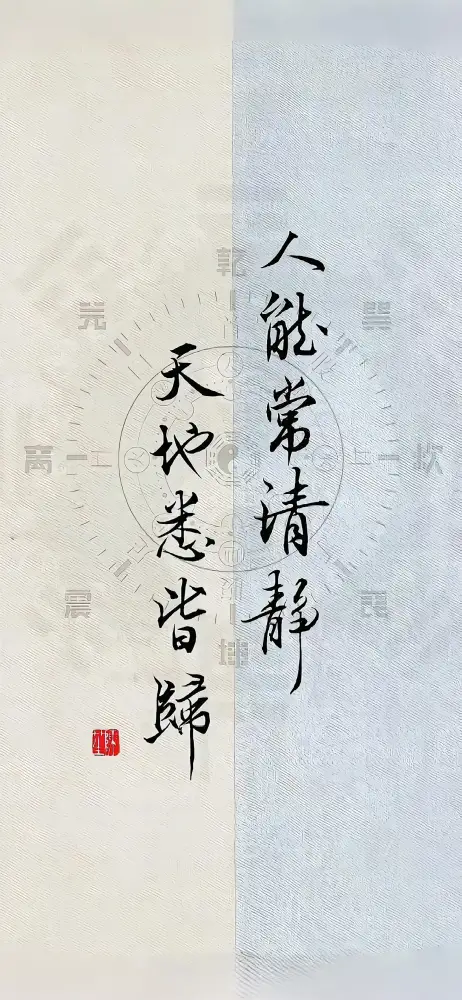 人能常清静
天地悉皆歸
乾
兑
巽
离
坎
震
艮
坤